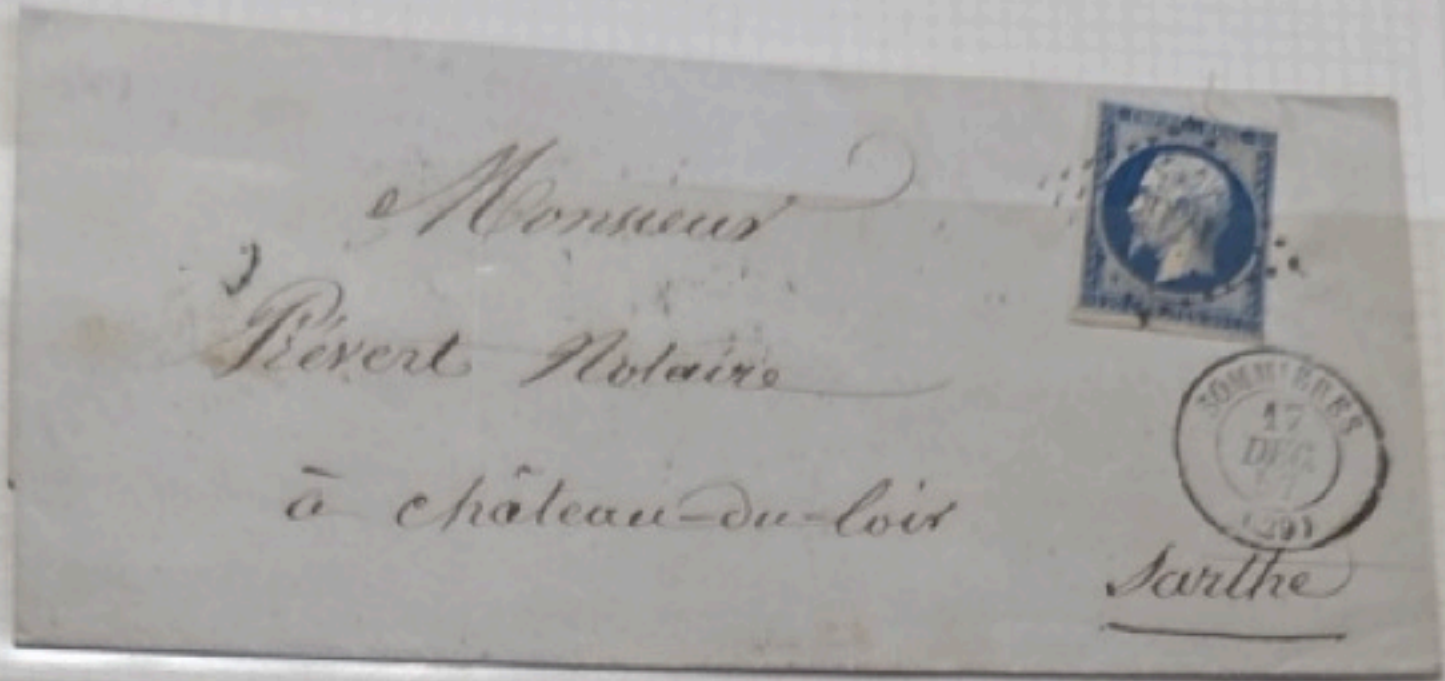 Monsieur
Prévert Notaire
à château-du-loir
Sarthe
SOMMIÈRES
17
DEC
(29)